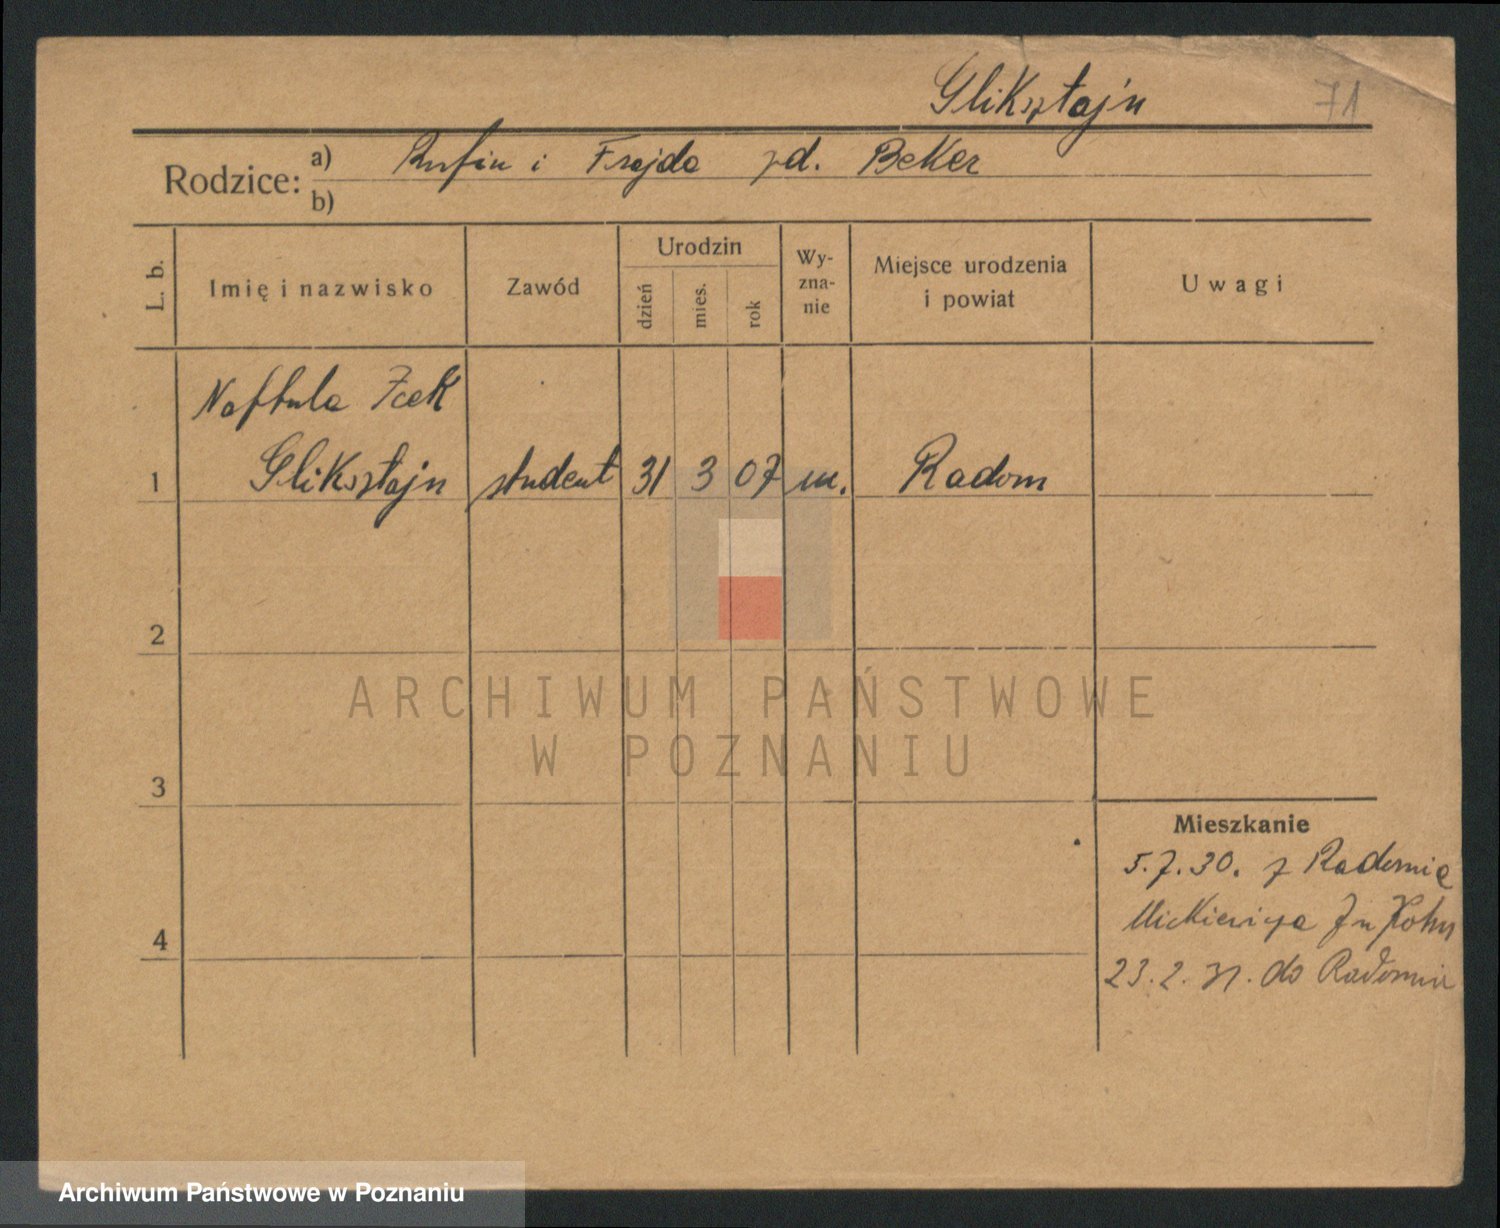 Gliksztajn 71
Rodzice: a) Rufin i Frajda zd. Beker
b)
L. b. Imię i nazwisko Zawód Urodzin dzień mies. rok Wyznanie Miejsce urodzenia i powiat Uwagi
Naftula Icek
1 Gliksztajn student 31 3 07 m. Radom
2
ARCHIWUM PAŃSTWOWE
W POZNANIU
3
Mieszkanie
5.7.30. z Radomia
Mickiewicza 7 u Kohn
4
23.2.31. do Radomia
Archiwum Państwowe w Poznaniu